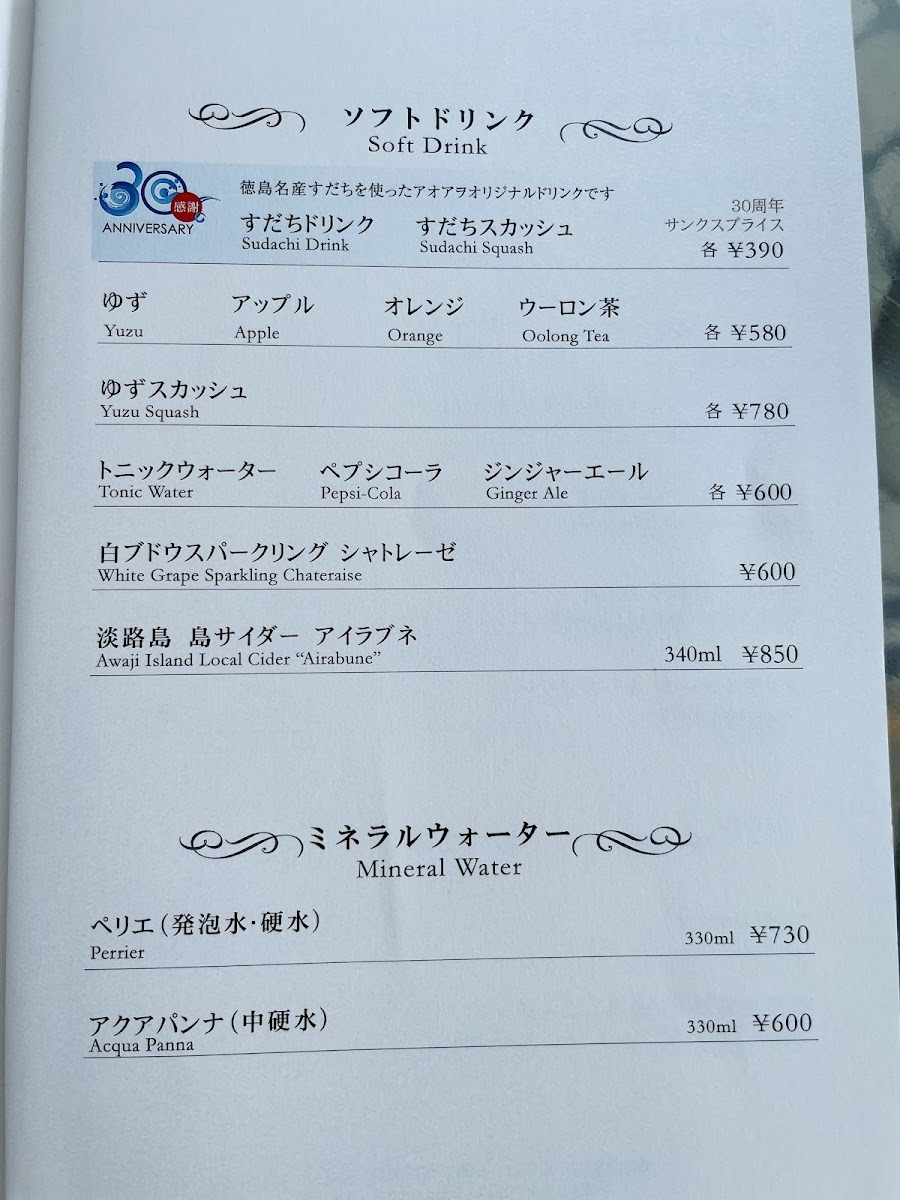 ソフトドリンク
Soft Drink
30
感謝
ANNIVERSARY
徳島名産すだちを使ったアオアヲオリジナルドリンクです
すだちドリンク すだちスカッシュ
Sudachi Drink Sudachi Squash
30周年
サンクスプライス
各 ¥390
ゆず アップル オレンジ ウーロン茶
Yuzu Apple Orange Oolong Tea 各 ¥580
ゆずスカッシュ
Yuzu Squash 各 ¥780
トニックウォーター ペプシコーラ ジンジャーエール
Tonic Water Pepsi-Cola Ginger Ale 各 ¥600
白ブドウスパークリング シャトレーゼ
White Grape Sparkling Chateraise ¥600
淡路島 島サイダー アイラブネ
Awaji Island Local Cider “Airabune” 340ml ¥850
ミネラルウォーター
Mineral Water
ペリエ（発泡水・硬水）
Perrier 330ml ¥730
アクアパンナ（中硬水）
Acqua Panna 330ml ¥600